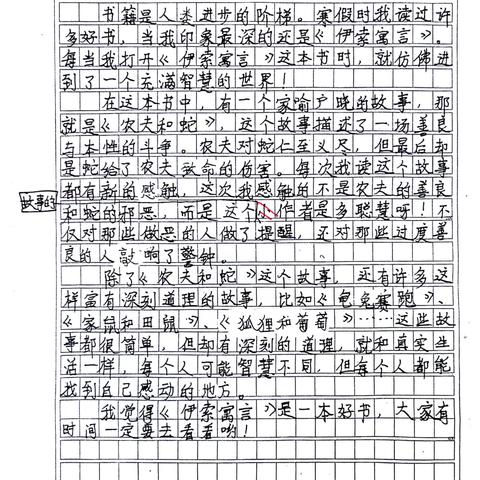 书籍是人类进步的阶梯。寒假时我读过许
多好书，当我印象最深的还是《伊索寓言》。
每当我打开《伊索寓言》这本书时，就仿佛进
到了一个充满智慧的世界！
在这本书中，有一个家喻户晓的故事，那
就是《农夫和蛇》，这个故事描述了一场善良
与本性的斗争。农夫对蛇仁至义尽，但最后却
是蛇给了农夫致命的伤害。每次我读这个故事
都有新的感触，这次我感触的不是农夫的善良
故事的
和蛇的邪恶，而是这个作者是多聪慧呀！不
仅对那些做恶的人做了提醒，还对那些过度善
良的人敲响了警钟。
除了《农夫和蛇》这个故事，还有许多这
样富有深刻道理的故事，比如《龟兔赛跑》、
《家鼠和田鼠》、《狐狸和葡萄》……这些故
事都很简单，但却有深刻的道理，就和真实生
活一样，每个人可能智慧不同，但每个人都能
找到自己感动的地方。
我觉得《伊索寓言》是一本好书，大家有
时间一定要去看看哟！